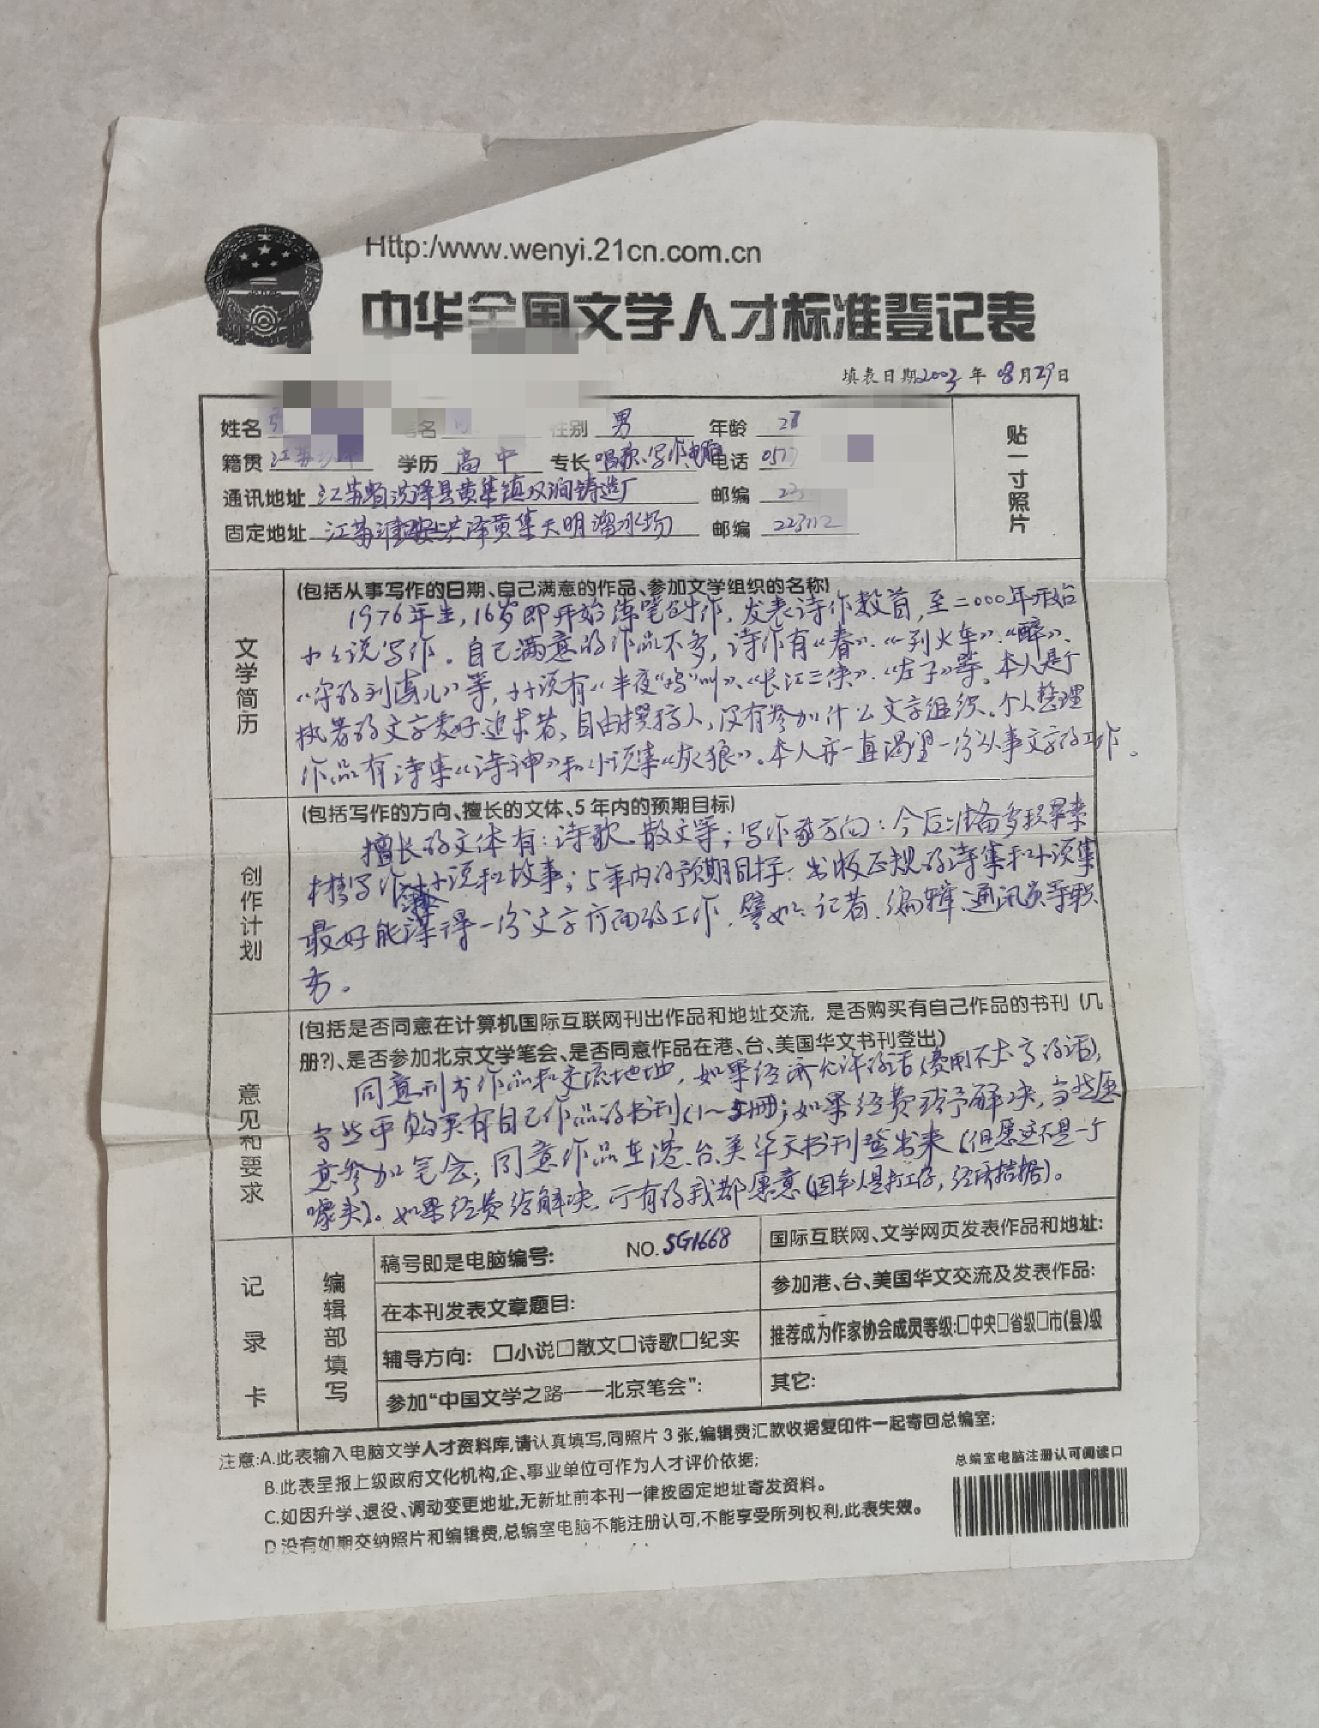 Http:/www.wenyi.21cn.com.cn
中华全国文学人才标准登记表
填表日期2003年08月29日
姓名 笔名 性别 男 年龄 27
籍贯 江苏 学历 高中 专长 唱歌、写作、电脑 电话 051
通讯地址 江苏省洪泽县黄集镇双涧铸造厂 邮编 23
固定地址 江苏淮安洪泽黄集天明溜冰场 邮编 223112
贴一寸照片
文学简历
(包括从事写作的日期、自己满意的作品、参加文学组织的名称)
1976年生,16岁即开始练笔创作,发表诗作数首,至二000年开始
小说写作。自己满意的作品不多,诗作有《春》、《一列火车》、《醉》、
《 》等,小说有《半夜“鸡”叫》、《长江三侠》、《左子》等。本人是个
执着的文字爱好追求者,自由撰稿人,没有参加什么文字组织。个人整理
作品有诗集《诗神》和小说集《灰狼》。本人亦一直渴望一份从事文字的工作。
创作计划
(包括写作的方向、擅长的文体、5年内的预期目标)
擅长的文体有:诗歌、散文等;写作方向:今后准备多积累素
材写作小说和故事;5年内的预期目标:出版正规的诗集和小说集
最好能谋得一份文字方面的工作,譬如:记者、编辑、通讯员等职
务。
意见和要求
(包括是否同意在计算机国际互联网刊出作品和地址交流,是否购买有自己作品的书刊(几
册?)、是否参加北京文学笔会、是否同意作品在港、台、美国华文书刊登出)
同意刊出作品和交流地址,如果经济允许的话(费用不太高的话),
当然可购买有自己作品的书刊(1~5册);如果经费给予解决,当然愿
意参加笔会;同意作品在港、台、美华文书刊登出来(但愿这不是一个
噱头)。如果经费给解决,所有的我都愿意(因本人是打工仔,经济拮据)。
记录卡
编辑部填写
稿号即是电脑编号: NO.SG1668
国际互联网、文学网页发表作品和地址:
在本刊发表文章题目:
参加港、台、美国华文交流及发表作品:
辅导方向: □小说□散文□诗歌□纪实
推荐成为作家协会成员等级:□中央□省级□市(县)级
参加“中国文学之路——北京笔会”:
其它:
注意:A.此表输入电脑文学人才资料库,请认真填写,同照片3张,编辑费汇款收据复印件一起寄回总编室;
B.此表呈报上级政府文化机构,企、事业单位可作为人才评价依据;
C.如因升学、退役、调动变更地址,无新址前本刊一律按固定地址寄发资料。
D.没有如期交纳照片和编辑费,总编室电脑不能注册认可,不能享受所列权利,此表失效。
总编室电脑注册认可阅读口